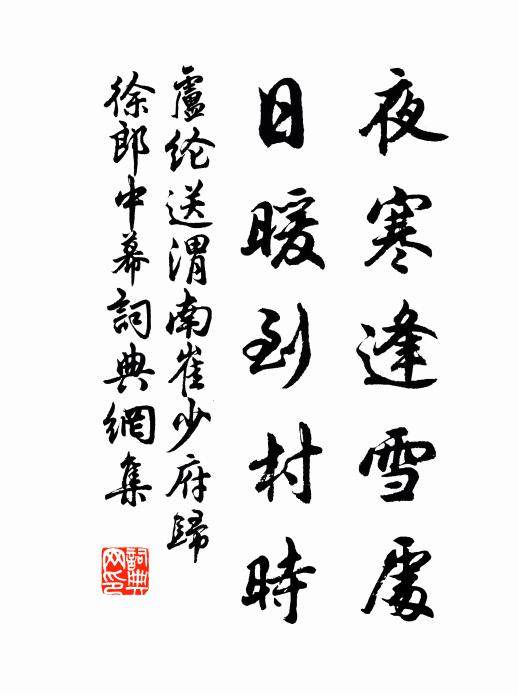 夜寒逢雪處
日暖到村時
盧纶送渭南崔少府歸
徐郎中幕詞典網集
詞典网印